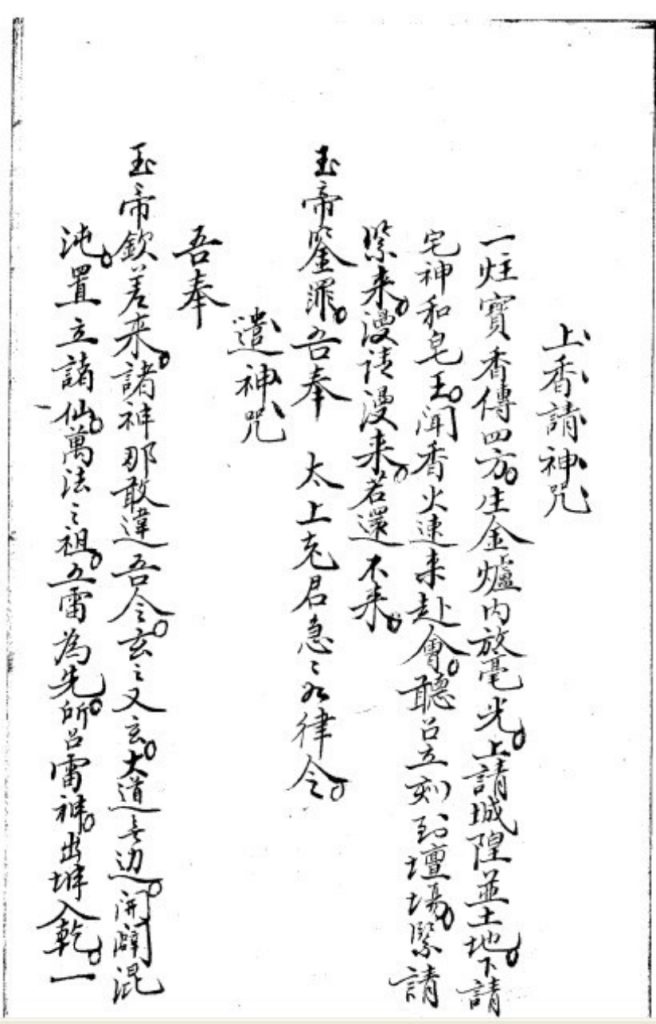 上香請神咒
一炷寶香傳四方。生金爐內放毫光。上請城隍並土地。下請
宅神和皂王。聞香火速来赴會。聽召立刻到壇場。緊請
緊来。漫请漫来。若還不来。
玉帝鉴罪。吾奉 太上老君急〻如律令。
遣神咒
吾奉
玉帝欽差来。諸神那敢違吾令。玄〻又玄。大道無边。開闢混
沌。置立諸仙。萬法〻祖。五雷為先。所召雷神。出坤入乾。一